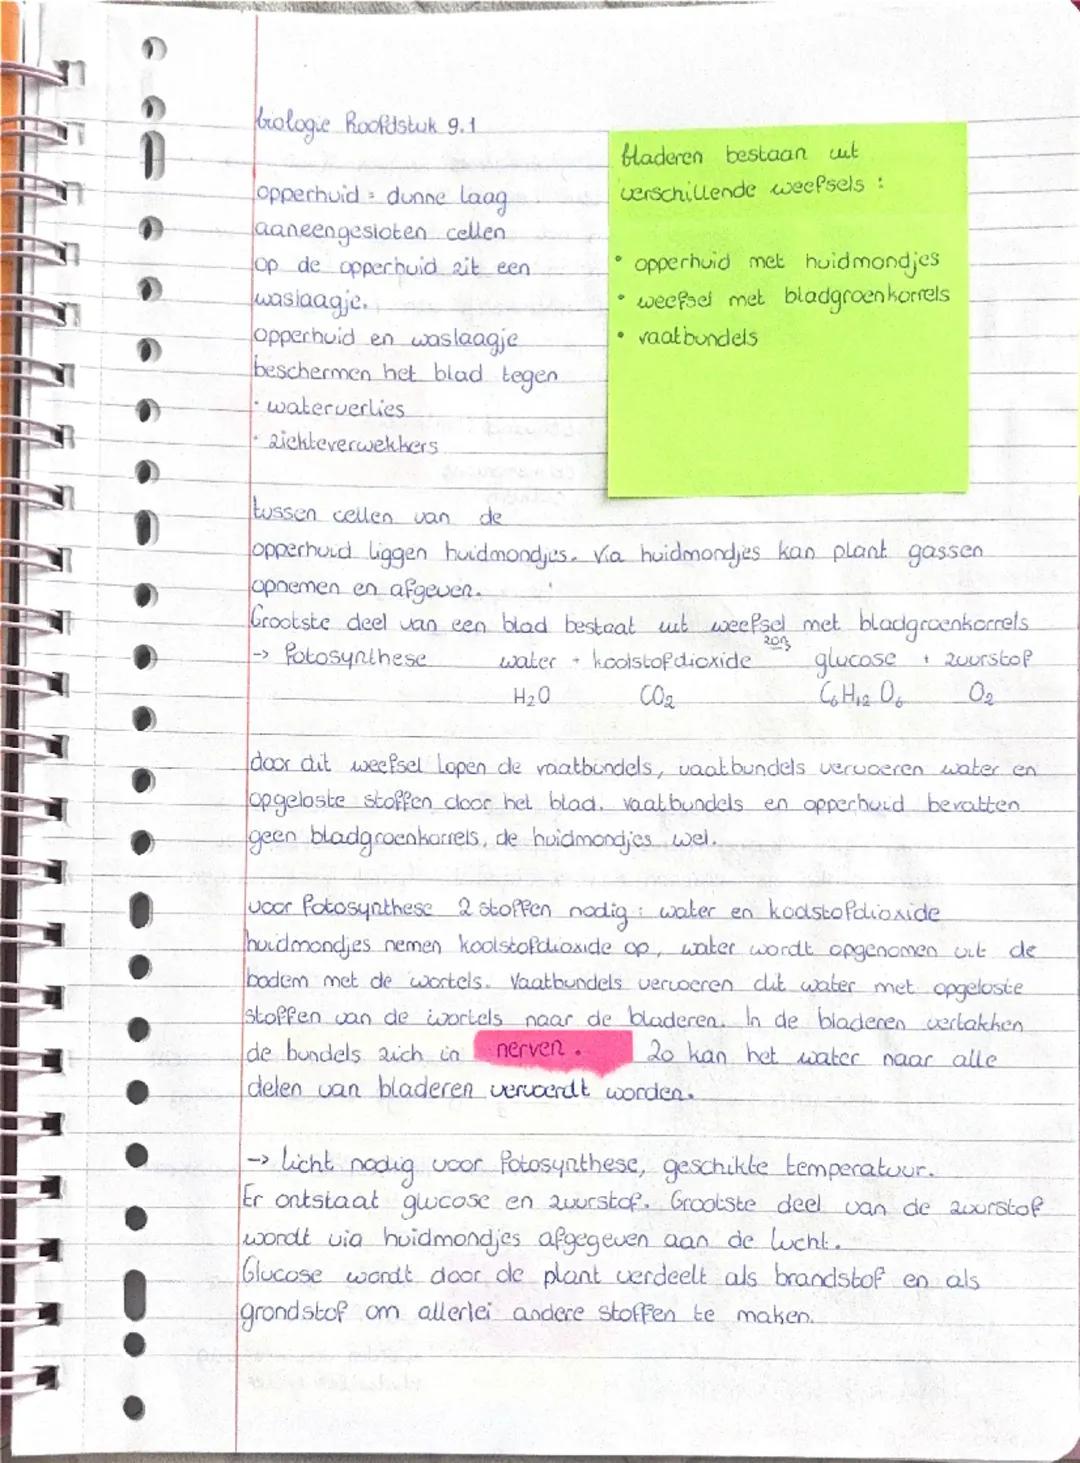 biologie Hoofdstuk 9.1
opperhuid = dunne laag
aaneengesloten cellen
op de opperhuid zit een
waslaagje.
opperhuid en waslaagje
beschermen het blad tegen
· waterverlies
· ziekteverwekkers
bladeren bestaan uit
verschillende weefsels :
• opperhuid met huidmondjes
• weefsel met bladgroenkorrels
• vaatbundels
tussen cellen van de
opperhuid liggen huidmondjes. Via huidmondjes kan plant gassen
opnemen en afgeven.
Grootste deel van een blad bestaat uit weefsel met bladgroenkorrels
zon
-> fotosynthese water + koolstofdioxide glucose + zuurstof
H₂O CO₂ C₆H₁₂O₆ O₂
door dit weefsel lopen de vaatbundels, vaatbundels vervoeren water en
opgeloste stoffen door het blad. vaatbundels en opperhuid bevatten
geen bladgroenkorrels, de huidmondjes wel.
voor fotosynthese 2 stoffen nodig : water en koolstofdioxide
huidmondjes nemen koolstofdioxide op, water wordt opgenomen uit de
bodem met de wortels. Vaatbundels vervoeren dit water met opgeloste
stoffen van de wortels naar de bladeren. In de bladeren vertakken
de bundels zich in nerven. Zo kan het water naar alle
delen van bladeren vervoerdt worden.
-> licht nodig voor fotosynthese, geschikte temperatuur.
Er ontstaat glucose en zuurstof. Grootste deel van de zuurstof
wordt via huidmondjes afgegeven aan de lucht.
Glucose wordt door de plant verdeelt als brandstof en als
grondstof om allerlei andere stoffen te maken.